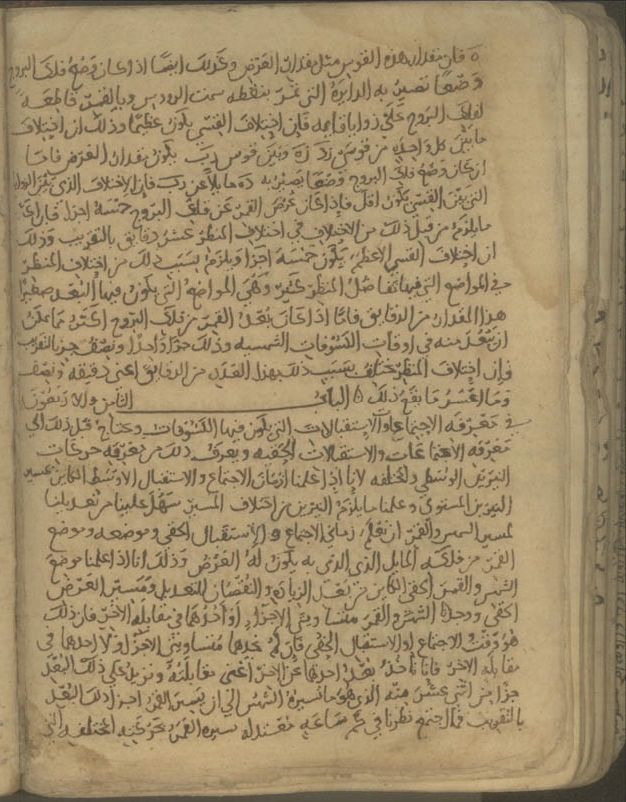 ه فان مقدار هذه القوس مثل مقدار العرض وكذلك ايضا اذا كان وضع فلك البروج
وضعا تصير به الدايرة التي تمر بنقطه سمت الرووس وبالقمر قاطعه
لفلك البروج على زوايا قايمه فان اختلاف القسي يكون عظيما وذلك ان اختلاف
ما بين كل واحده من قوسي زد زه وبين قوس دب يكون مقدار العرض فاما
ان كان وضع فلك البروج وضعا يصير به ده مايلا عن دب فان الاختلاف الذي
التي بين القسي يكون اقل فاذا كان عرض القمر عن فلك البروج خمسة اجزا فان
ما يلزم من قبل ذلك من الاختلاف في اختلاف المنظر عشر دقايق بالتقريب وذلك
ان اختلاف القسي الاعظم يكون خمسه اجزا ويلزم بسبب ذلك من اختلاف المنظر
في المواضع التي فيها تفاضل المنظر كثير وهي المواضع التي يكون فيها البعد صغيرا
هذا المقدار من الدقايق فاما اذا كان بعد القمر من فلك البروج اكثر ما يمكن
ان يبعد منه في اوقات الكسوفات الشمسيه وذلك جزا واحدا ونصف جزء بالتقريب
فان اختلاف المنظر يختلف بسبب ذلك بهذا القدر من الدقايق اعني دقيقه ونصف
وما اعسر ما يقع ذلك ه الباب الثامن والاربعون
في معرفه الاجتماعات والاستقبالات التي يكون فيها الكسوفات ونحتاج قبل ذلك الى
معرفه الاجتماعات والاستقبالات الحقيه ويعرف ذلك من معرفه حركات
النيرين الوسطي والمختلفه لانا اذا علمنا ازمان الاجتماع والاستقبال الاوسط الكاين بمسير
النيرين المستوي وعلمنا ما يلزم النيرين من اختلاف المسير سهل علينا من تعديلنا
لمسير الشمس والقمر ان نعلم زماني الاجتماع والاستقبال الحقي وموضعه وموضع
القمر من فلكه المايل الذي به يكون له العرض وذلك انا اذا علمنا موضع
الشمس والقمر الحقي الكاين من بعد الزياده والنقصان للتعديل ومسير العرض
الحقي ووجدنا الشمس والقمر متساويي الاجزا او احدهما في مقابله الاخر فان ذلك
هو وقت الاجتماع او الاستقبال الحقي فان لم نجدهما متساويين الاجزا ولا احدهما في
مقابله الاخر فانا ناخذ بعد احدهما عن الاخر اعني مقابلته ونزيد على ذلك البعد
جزا من اثني عشر منه الذي هو ما تسيره الشمس الى ان يسير القمر اجزا ذلك البعد
بالتقريب فما اجتمع نظرنا في كم ساعه معتدله يسيره القمر بحركته المختلفه